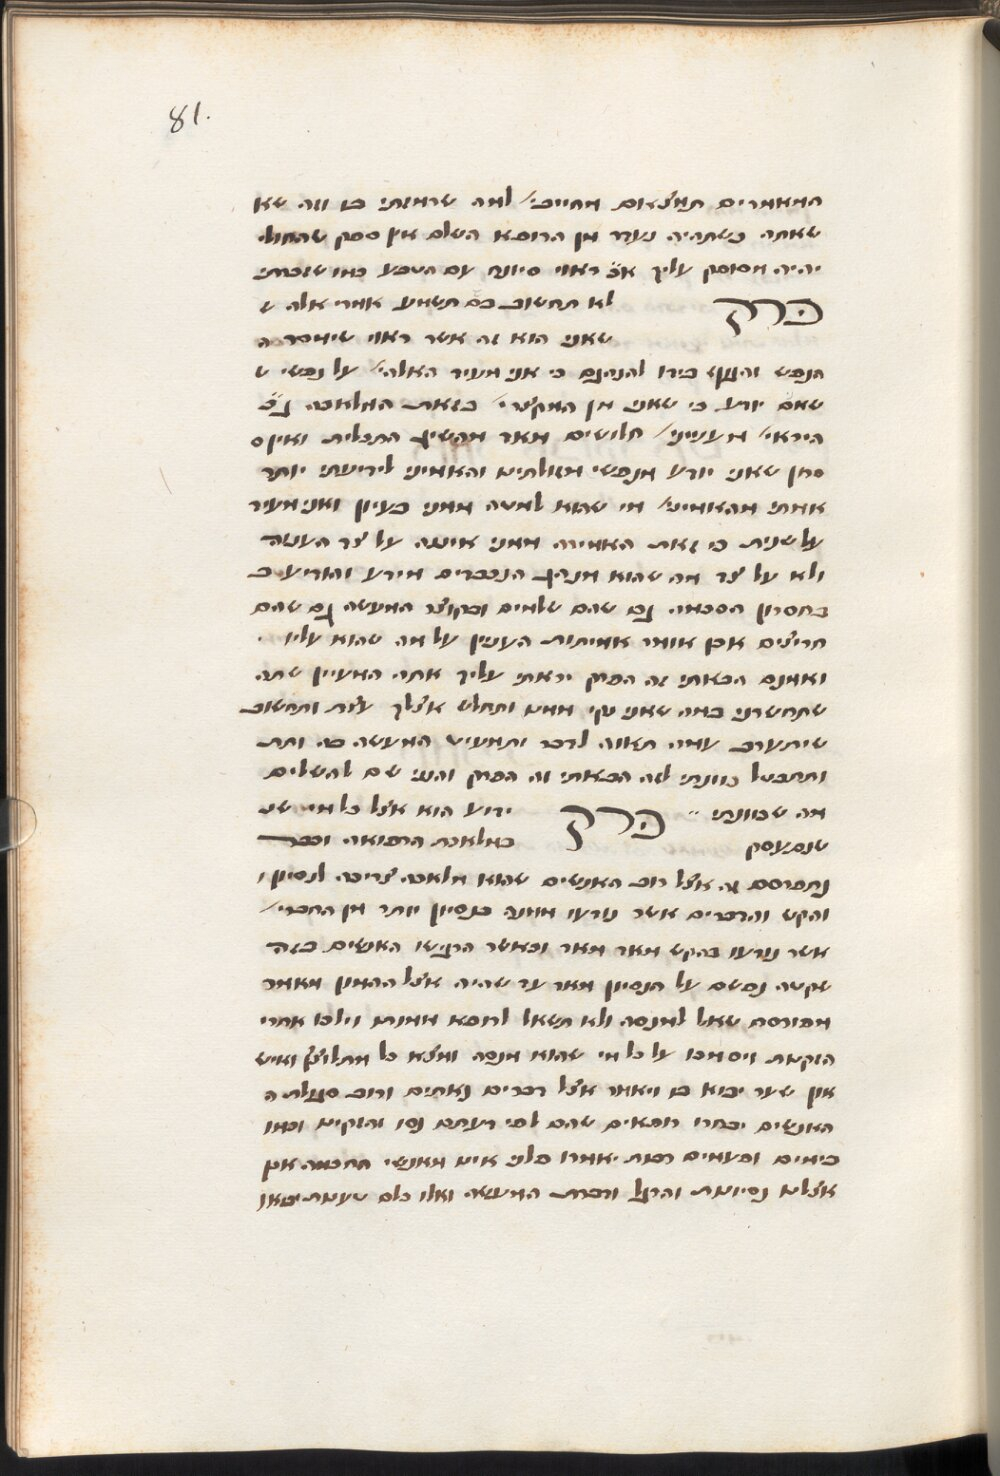 81.
המאמרים תמצאום מחייבי׳ למה שרמזתי בו וזה שא
שאתה כשתהיה נעדר מן הרופא השלם אין ספק שהחולי
יהיה מסופק עליך אכ ראוי סיונח עם הטבע כמו שזכרתי
פרק לא תחשוב בם תשמע אמרי אלה ש
שאני הוא זה אשר ראוי שימסר ה
הנפש והגוף בידו להנהגם כי אני מעיד האלה׳ על נפשי ש
שאם יודע כי שאני מן המקצרי׳ בזאת המלאכה גכ
היראי׳ מעניני׳ חלושים מאד מהשיג התכלית ואין ס
ספן שאני יודע מנפשי מזולתים והאמיני לידיעתי יותר
אמתי מהאמיני׳ מי שהוא למטה ממני בעיון ואני מעיד
על שנית כי זאת האמירה ממני אינה על צד הענוה
ולא על צד מה שהוא מנהג הנכבדים מידע והודיע ב
בחסרון הסכמה גם שהם שלמים ובקוצר המעשה גם שהם
חריצים אכן אומר אמיתות הענין על מה שהוא עליו .
ואמנם הבאתי זה הפרק יראתי עליך אתה המעיין שתה
שתחשדני במה שאני נקי ממנו ותחלש אצלך עצת ותחשוב
שיתערב עמה תאוה לדבר ותמעיט המעשה בה ותת
ותתבטל כוונתי לזה הבאתי זה הפרק והנני שם להשלים
מה שכוונתי ״ פרק ידוע הוא אצל כל מי שנ
שנתעסק במלאכת הרפואה וכבר
נתפרסם זה אצל רוב האנשים שהוא מלאכה צריכה לנסיון ו
והקש והדברים אשר נודעו ממנה בנסיון יותר מן הדברי׳
אשר נודעו בהקש מאד מאד וכאשר הרגישו האנשים בזה
שקטה נפשם על הנסיון מאד עד שהיה אצל ההמון מאמר
מפורסם שאל למנסה ולא תשאל לרופא ממנו וילכו אחרי
הזקנות ויסמכו על כל מי שהוא מנסה ומצא כל מתלוצץ ואיש
און שער יבוא בו ויאמר אצל דברים נאותים ורוב סגולת ה
האנשים יבחרו רופאים שהם לפי דעתם נסו והזקינו וכמו
בימים ופעמים רבות יאמרו פלוני אינו מאנשי החכמה אכן
אצלינו נסיונות והרגל ורבות המעשה ואלו כלם טעיות יבאו